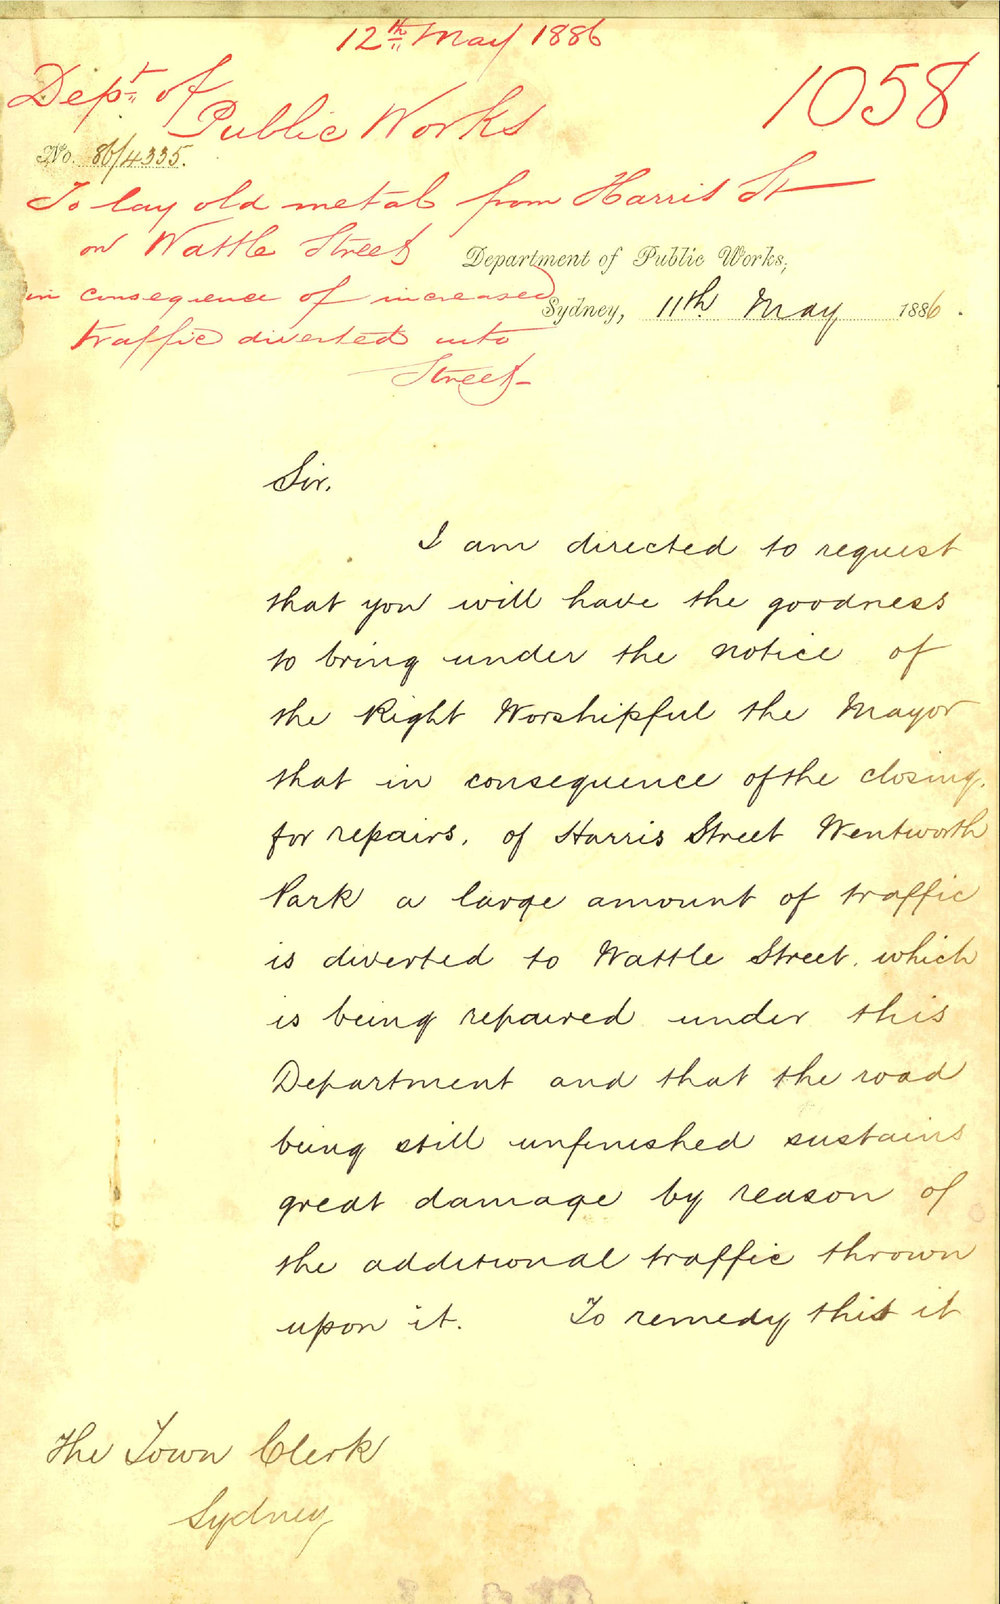 12th May 1886
1058
Dept of
Public Works
No. 86/4335.
To lay old metal from Harris St
on Wattle Street
in consequence of increased
traffic diverted into
Street
Department of Public Works,
Sydney, 11th May 1886.
Sir,
I am directed to request
that you will have the goodness
to bring under the notice of
the Right Worshipful the Mayor
that in consequence of the closing,
for repairs, of Harris Street Wentworth
Park a large amount of traffic
is diverted to Wattle Street, which
is being repaired under this
Department and that the road
being still unfinished sustains
great damage by reason of
the additional traffic thrown
upon it. To remedy this it
The Town Clerk
Sydney